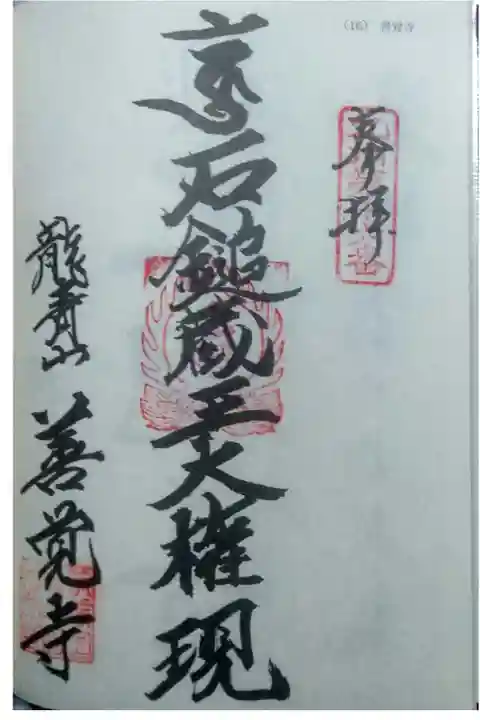 (16) 善覚寺
奉拝
石鎚蔵王大権現
龍 山 善覚寺